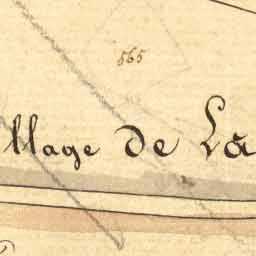 565
llage de La